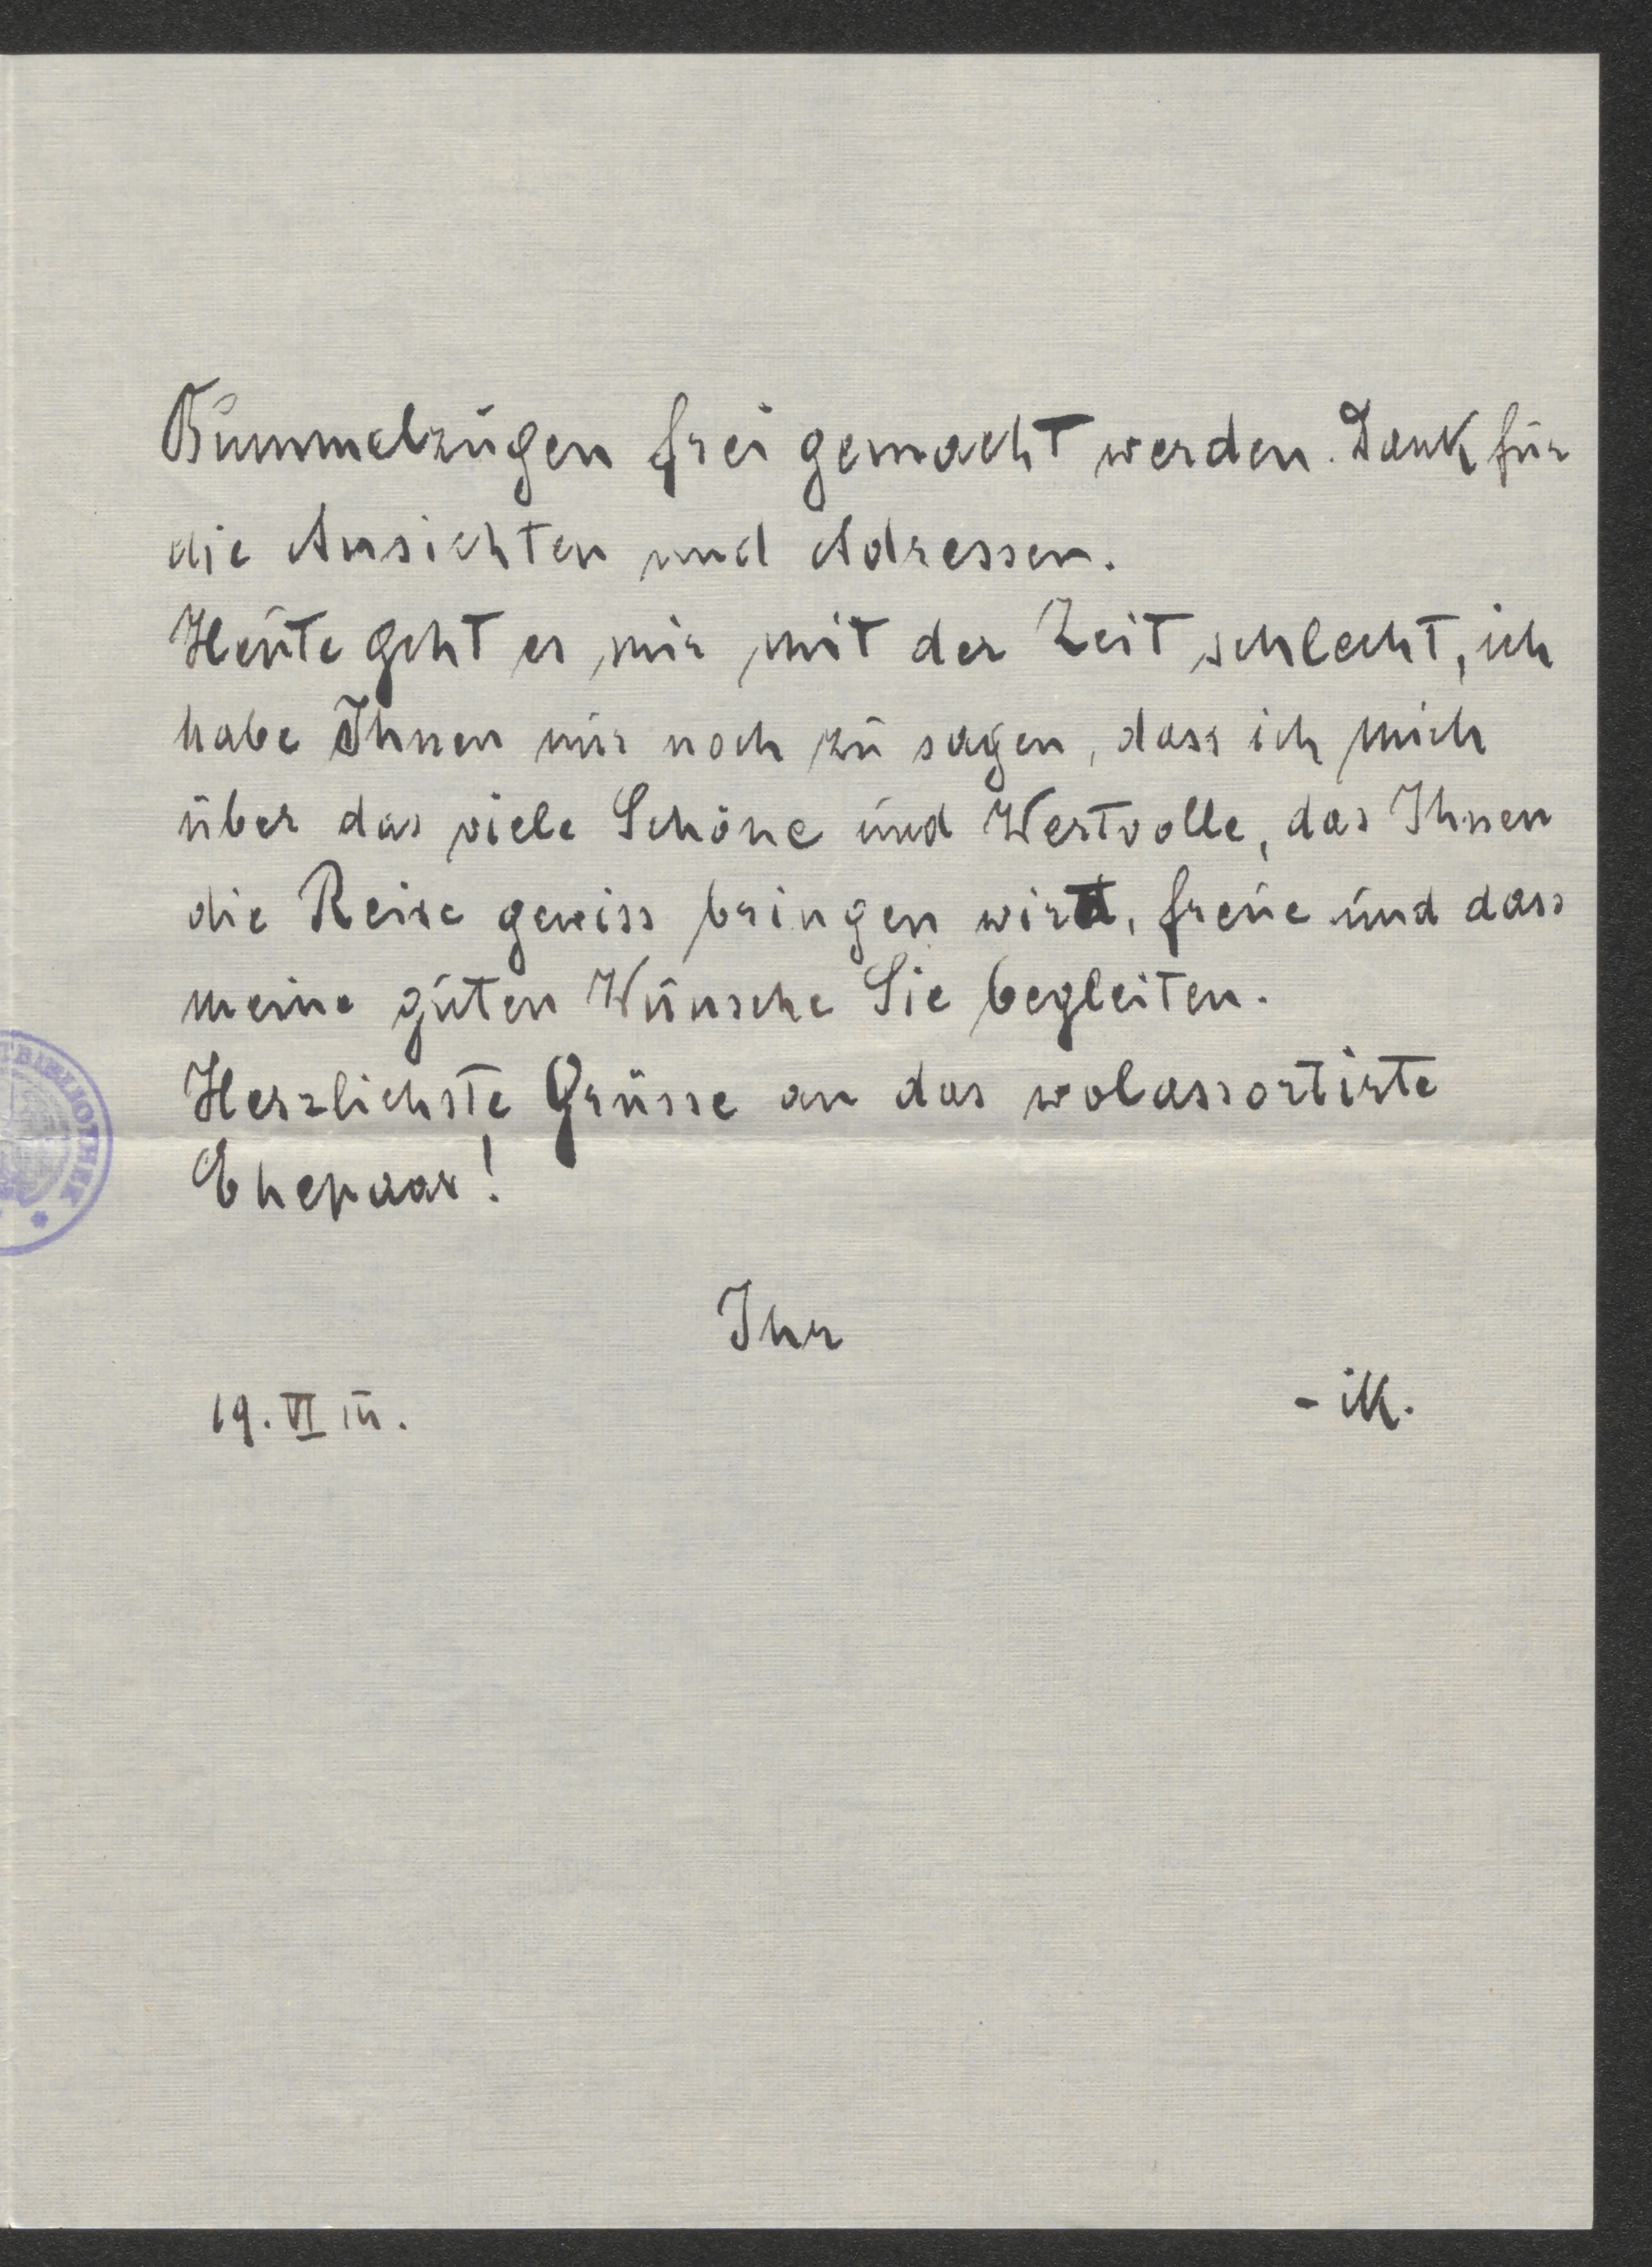 Bummelzügen frei gemacht werden. Dank für
die Ansichten und Adressen.
Heute geht es mir mit der Zeit schlecht, ich
habe Ihnen nur noch zu sagen, dass ich mich
über das viele Schöne und Wertvolle, das Ihnen
die Reise gewiss bringen wird, freue und dass
meine guten Wünsche Sie begleiten.
Herzlichste Grüsse an das wolassortirte
Ehepaar!
Ihr
19. VI